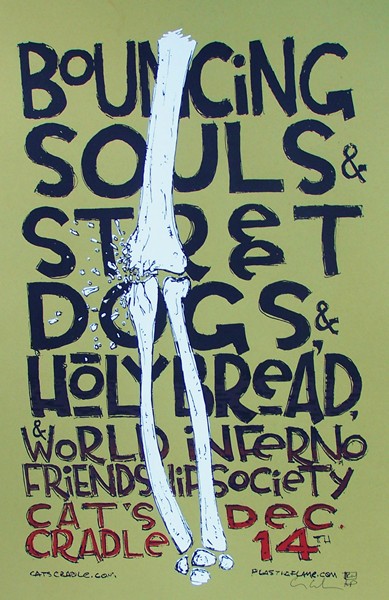 BOUNCiNG
SOULS &
STReeT
DOGS, &
HOLY BReAD,
& WORLD iNFeRNO
FRieNDSHiP SOCieTY
CAT'S DEC.
CRADLe 14TH
CATSCRADLE.COM. PLASTICFLAME.COM